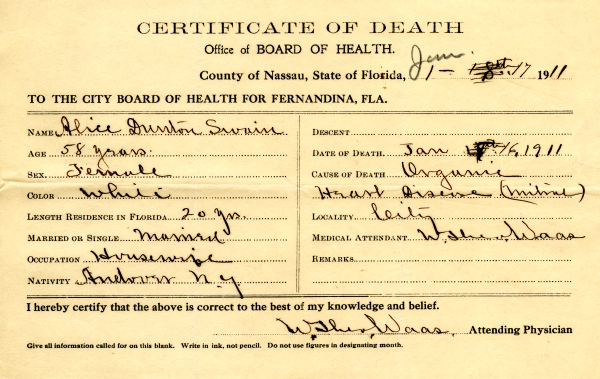 CERTIFICATE OF DEATH
Office of BOARD OF HEALTH.
County of Nassau, State of Florida, Jan. 17 1911
TO THE CITY BOARD OF HEALTH FOR FERNANDINA, FLA.
NAME Alice Dunton Swain
AGE 58 years.
SEX. Female
COLOR White
LENGTH RESIDENCE IN FLORIDA 20 yrs.
MARRIED OR SINGLE Married
OCCUPATION Housewife
NATIVITY Andover N.Y
DESCENT
DATE OF DEATH. Jan 16, 1911
CAUSE OF DEATH Organic
Heart Disease (Mitral)
LOCALITY City
MEDICAL ATTENDANT Waas
REMARKS
I hereby certify that the above is correct to the best of my knowledge and belief.
Waas, Attending Physician
Give all information called for on this blank. Write in ink, not pencil. Do not use figures in designating month.